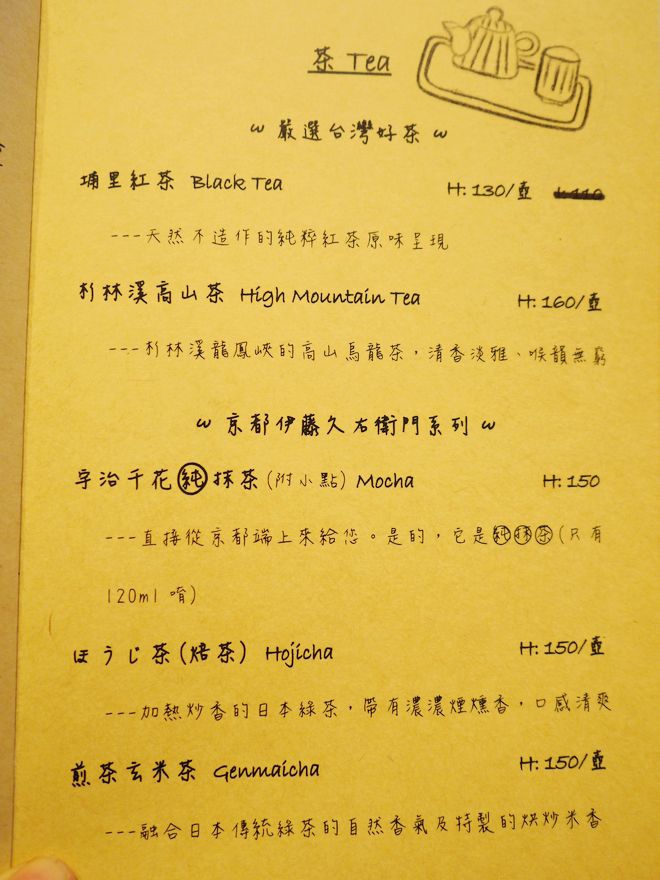 茶 Tea
嚴選台灣好茶
埔里紅茶 Black Tea H: 130/壺
---天然不造作的純粹紅茶原味呈現
杉林溪高山茶 High Mountain Tea H: 160/壺
---杉林溪龍鳳峽的高山烏龍茶，清香淡雅、喉韻無窮
京都伊藤久右衛門系列
宇治千花純抹茶(附小點) Mocha H: 150
---直接從京都端上來給您。是的，它是純抹茶(只有
120ml 唷)
ほうじ茶(焙茶) Hojicha H: 150/壺
---加熱炒香的日本綠茶，帶有濃濃煙燻香，口感清爽
煎茶玄米茶 Genmaicha H: 150/壺
---融合日本傳統綠茶的自然香氣及特製的烘炒米香